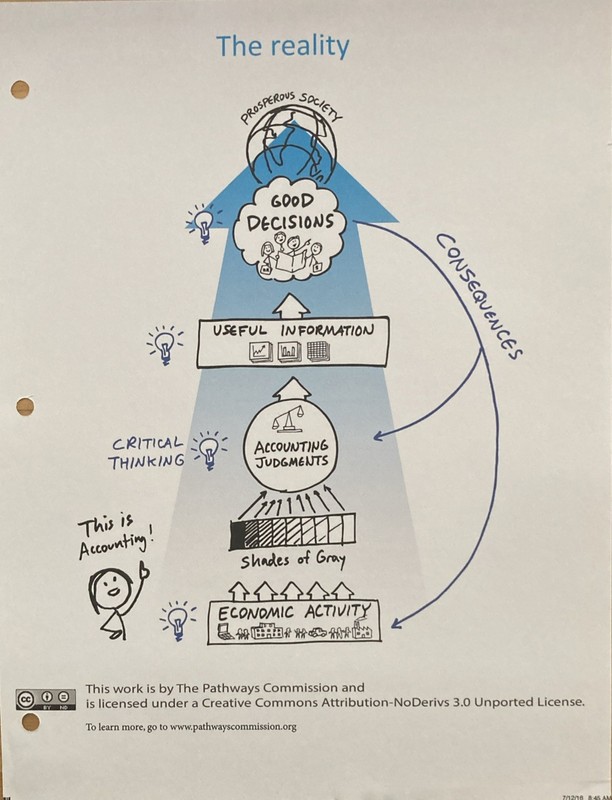 The reality
PROSPEROUS SOCIETY
GOOD
DECISIONS
CONSEQUENCES
USEFUL INFORMATION
CRITICAL
THINKING
ACCOUNTING
JUDGMENTS
Shades of Gray
This is
Accounting!
ECONOMIC ACTIVITY
cc
BY ND
This work is by The Pathways Commission and
is licensed under a Creative Commons Attribution-NoDerivs 3.0 Unported License.
To learn more, go to www.pathwayscommission.org
7/12/18 8:45 AM